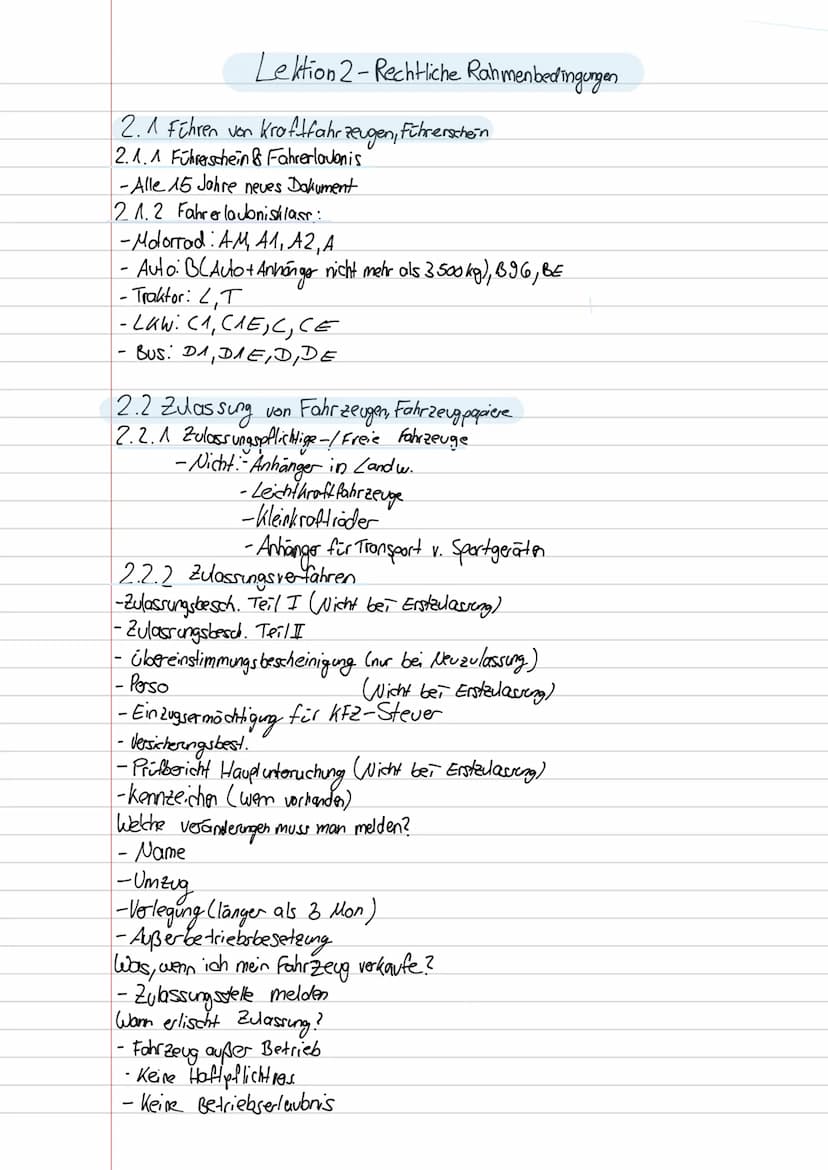 Lektion 2 - Rechtliche Rahmenbedingungen
2.1 Führen von Kraftfahrzeugen, Führerschein
2.1.1 Führerschein & Fahrerlaubnis
- Alle 15 Jahre neues Dokument
2.1.2 Fahrerlaubnisklass:
- Motorrad: AM, A1, A2, A
- Auto: B (Auto + Anhänger nicht mehr als 3500 kg), B96, BE
- Traktor: L, T
- LKW: C1, C1E, C, CE
- Bus: D1, D1E, D, DE
2.2 Zulassung von Fahrzeugen, Fahrzeugpapiere
2.2.1 Zulassungspflichtige-/Freie Fahrzeuge
- Nicht: - Anhänger in Landw.
- Leichtkraftfahrzeuge
- Kleinkrafträder
- Anhänger für Transport v. Sportgeräten
2.2.2 Zulassungsverfahren
- Zulassungsbesch. Teil I (Nicht bei Erstzulassung)
- Zulassungsbesch. Teil II
- Übereinstimmungsbescheinigung (nur bei Neuzulassung)
- Perso (Nicht bei Erstzulassung)
- Einzugsermächtigung für KFZ-Steuer
- Versicherungsbest.
- Prüfbericht Hauptuntersuchung (Nicht bei Erstzulassung)
- Kennzeichen (wenn vorhanden)
Welche veränderungen muss man melden?
- Name
- Umzug
- Verlegung (länger als 3 Mon)
- Außerbetriebsbesetzung
Was, wenn ich mein Fahrzeug verkaufe?
- Zulassungsstelle melden
Wann erlischt Zulassung?
- Fahrzeug außer Betrieb
- Keine Haftpflichtves.
- Keine Betriebserlaubnis